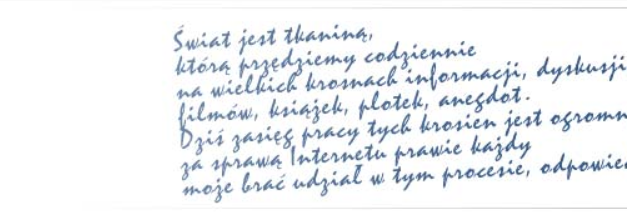 Świat jest tkaniną,
którą przędziemy codziennie
na wielkich krosnach informacji, dyskusji
filmów, książek, plotek, anegdot.
Dziś zasięg pracy tych krosien jest ogromn
za sprawą Internetu prawie każdy
może brać udział w tym procesie, odpowie